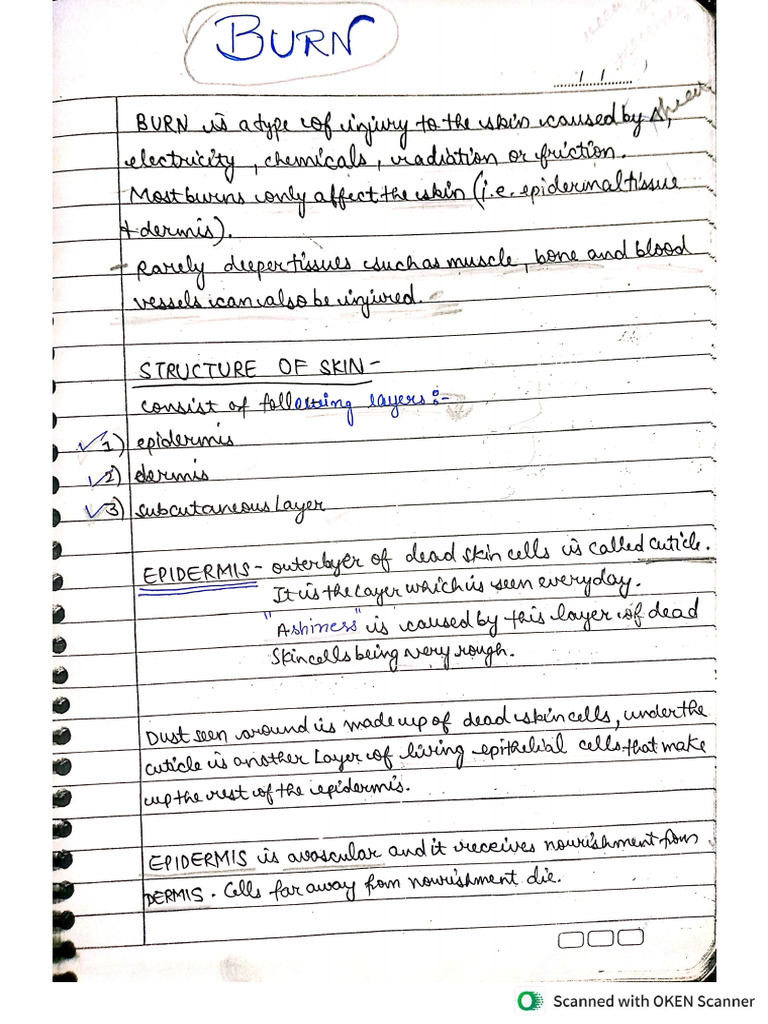 BURN
BURN is a type of injury to the skin caused by
electricity, chemicals, radiation or friction.
Most burns only affect the skin (i.e. epidermal tissue
+ dermis).
- Rarely deeper tissues such as muscle, bone and blood
vessels can also be injured.
STRUCTURE OF SKIN -
consist of following layers :-
1) epidermis
2) dermis
3) subcutaneous layer
EPIDERMIS - outerlayer of dead skin cells is called cuticle.
It is the layer which is seen everyday.
"Ashiness" is caused by this layer of dead
skin cells being very rough.
Dust seen around is made up of dead skin cells, under the
cuticle is another layer of living epithelial cells that make
up the rest of the epidermis.
EPIDERMIS is avascular and it receives nourishment from
DERMIS. Cells far away from nourishment die.
Scanned with OKEN Scanner